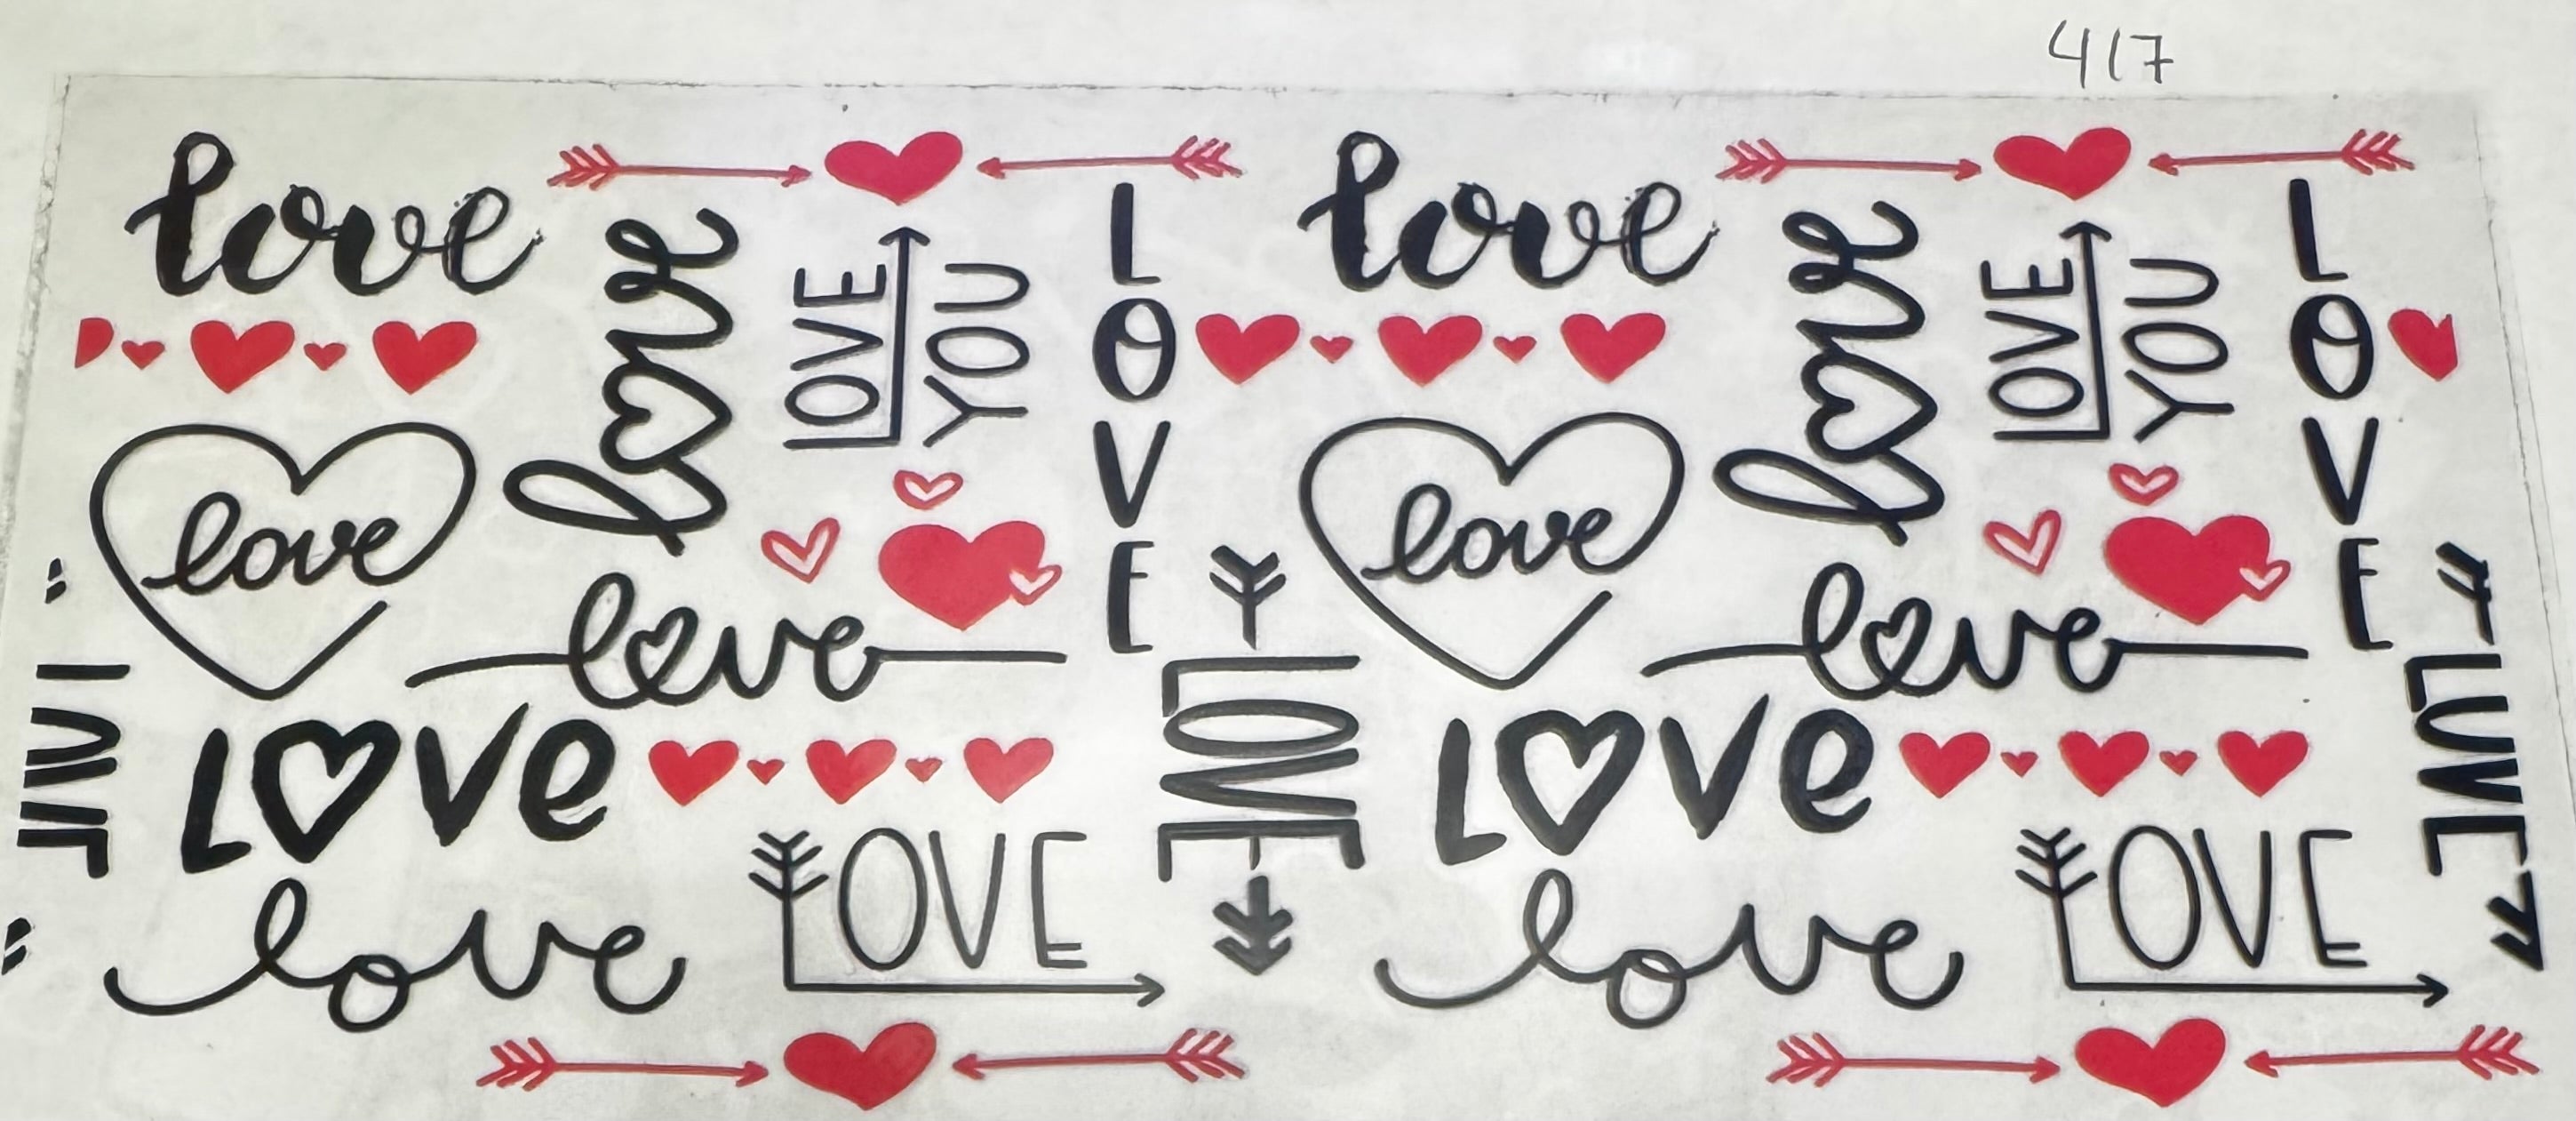 417
love
love
LOVE
YOU
LOVE
love
love
LOVE
love
LOVE
LOVE
love
love
LOVE
YOU
LOVE
love
love
LOVE
love
LOVE
LOVE